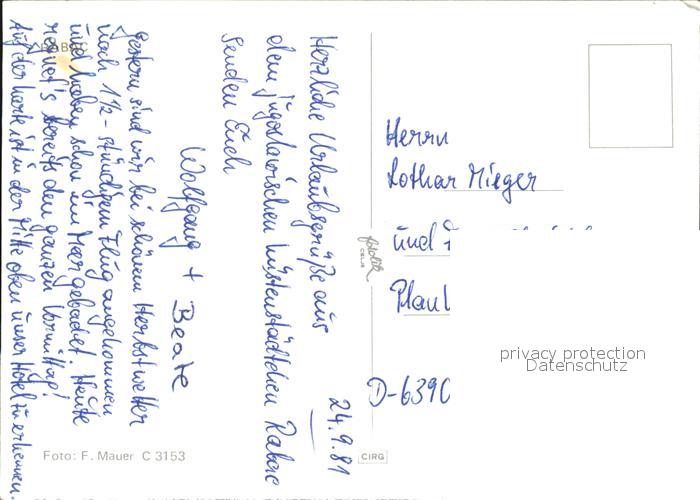 24.9.81
Herzliche Urlaubsgrüße aus
dem jugoslawischen Küstenstädtchen Rabac
senden Euch
Wolfgang + Beate
Gestern sind wir bei schönem Herbstwetter
nach 1½-stündigem Flug angekommen
und haben schon im Meer gebadet. Heute
regnet's bereits den ganzen Vormittag!
Auf der Karte ist in der Mitte oben unser Hotel zu erkennen.
RABAC
Foto: F. Mauer C 3153
fotolik
CELJE
CIRG
Herrn
Lothar Mieger
und
D-6390
privacy protection
Datenschutz